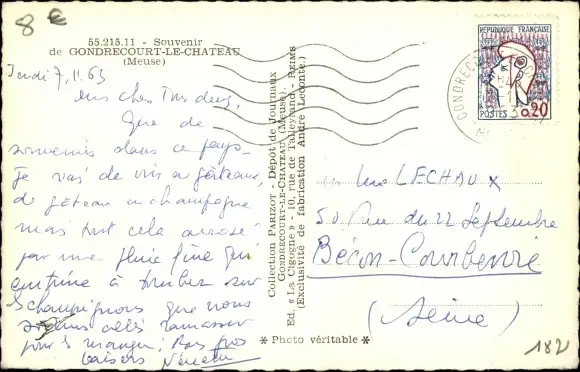 8 €
55.215.11 - Souvenir
de GONDRECOURT-LE-CHATEAU
(Meuse)
Jeudi 7.11.63
mes chers Tous deux,
Que de
souvenirs dans ce pays.
Je vais de vin en gâteaux,
de gâteau en champagne
mais tout cela arrosé
par une pluie fine qui
continue à tomber sur
les champignons que nous
allés ramasser
pour les manger! Bons gros
baisers
Collection PARIZOT, Dépôt de Journaux
GONDRECOURT-LE-CHATEAU (Meuse).
Ed. « LA CIGOGNE » - 10, rue de Talleyrand - REIMS
(Exclusivité de fabrication André Leconte.)
* Photo véritable *
REPUBLIQUE FRANÇAISE
POSTES 0,20
GONDRECOURT
LECHAUX
50 Rue du 22 Septembre
Bécon-Courbevoie
(Seine)
182